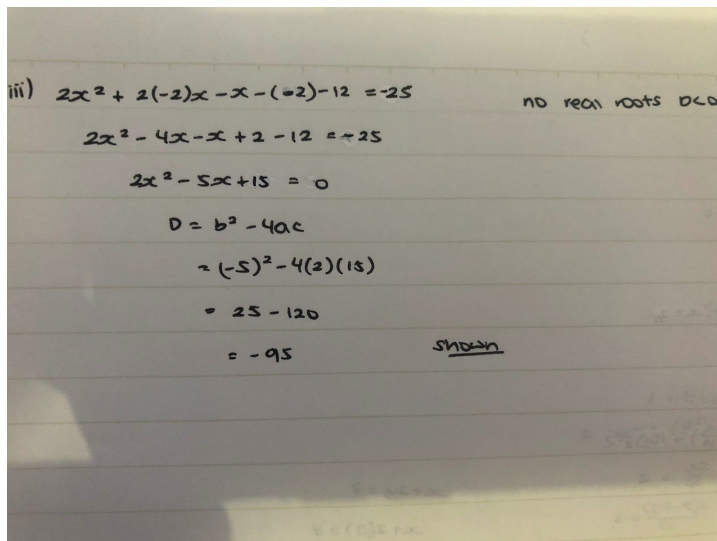 iii) 2x² + 2(-2)x - x - (-2) - 12 = -25
no real roots D<0
2x² - 4x - x + 2 - 12 = -25
2x² - 5x + 15 = 0
D = b² - 4ac
= (-5)² - 4(2)(15)
= 25 - 120
= -95
shown